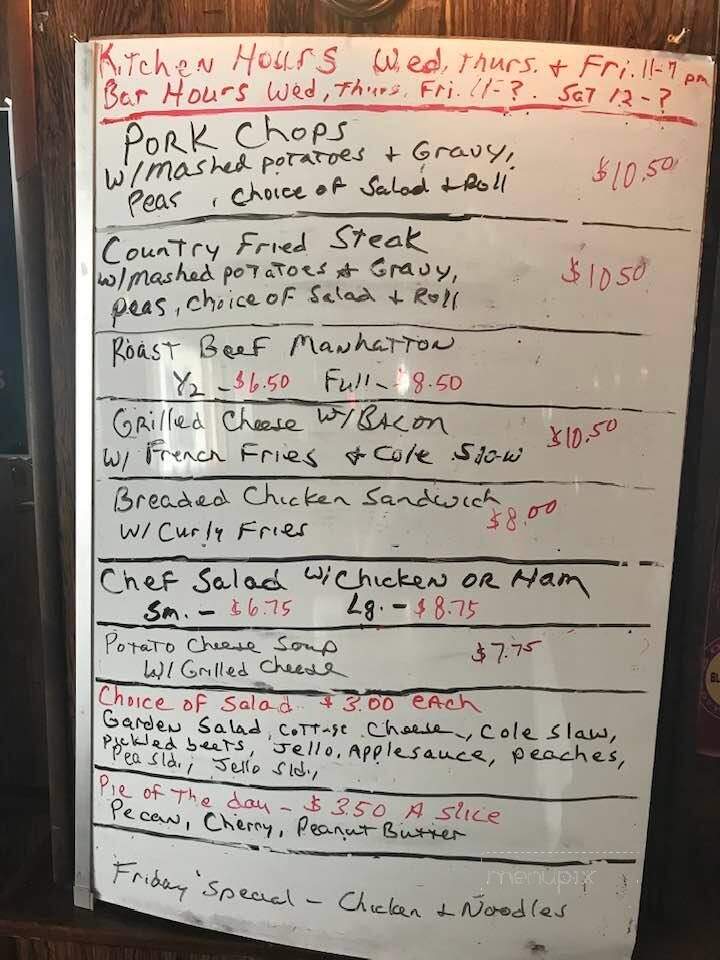 Kitchen Hours Wed, Thurs. + Fri. 11-7 pm
Bar Hours Wed, Thurs, Fri. 11-? Sat 12-?
Pork Chops
w/mashed potatoes + Gravy,
Peas, Choice of Salad + Roll
$10.50
Country Fried Steak
w/mashed potatoes + Gravy,
peas, choice of Salad + Roll
$10.50
Roast Beef Manhatton
1/2 - $6.50 Full - $8.50
Grilled Cheese w/Bacon
w/ French Fries + Cole Slow
$10.50
Breaded Chicken Sandwich
w/ Curly Fries
$8.00
Chef Salad w/Chicken OR Ham
Sm. - $6.75 Lg. - $8.75
Potato Cheese Soup
w/ Grilled Cheese
$7.75
Choice of Salad $3.00 each
Garden Salad, Cottage Cheese, Cole Slaw,
pickled beets, Jello, Applesauce, peaches,
Pea Sld., Jello Sld.,
Pie of The day - $3.50 A Slice
Pecan, Cherry, Peanut Butter
menupix
Friday Special - Chicken + Noodles